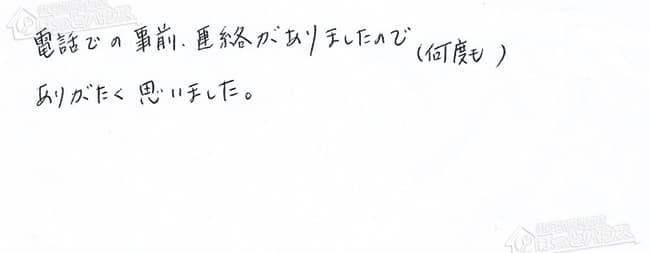 電話での事前、連絡がありましたので(何度も)
ありがたく思いました。
ほっとハウス